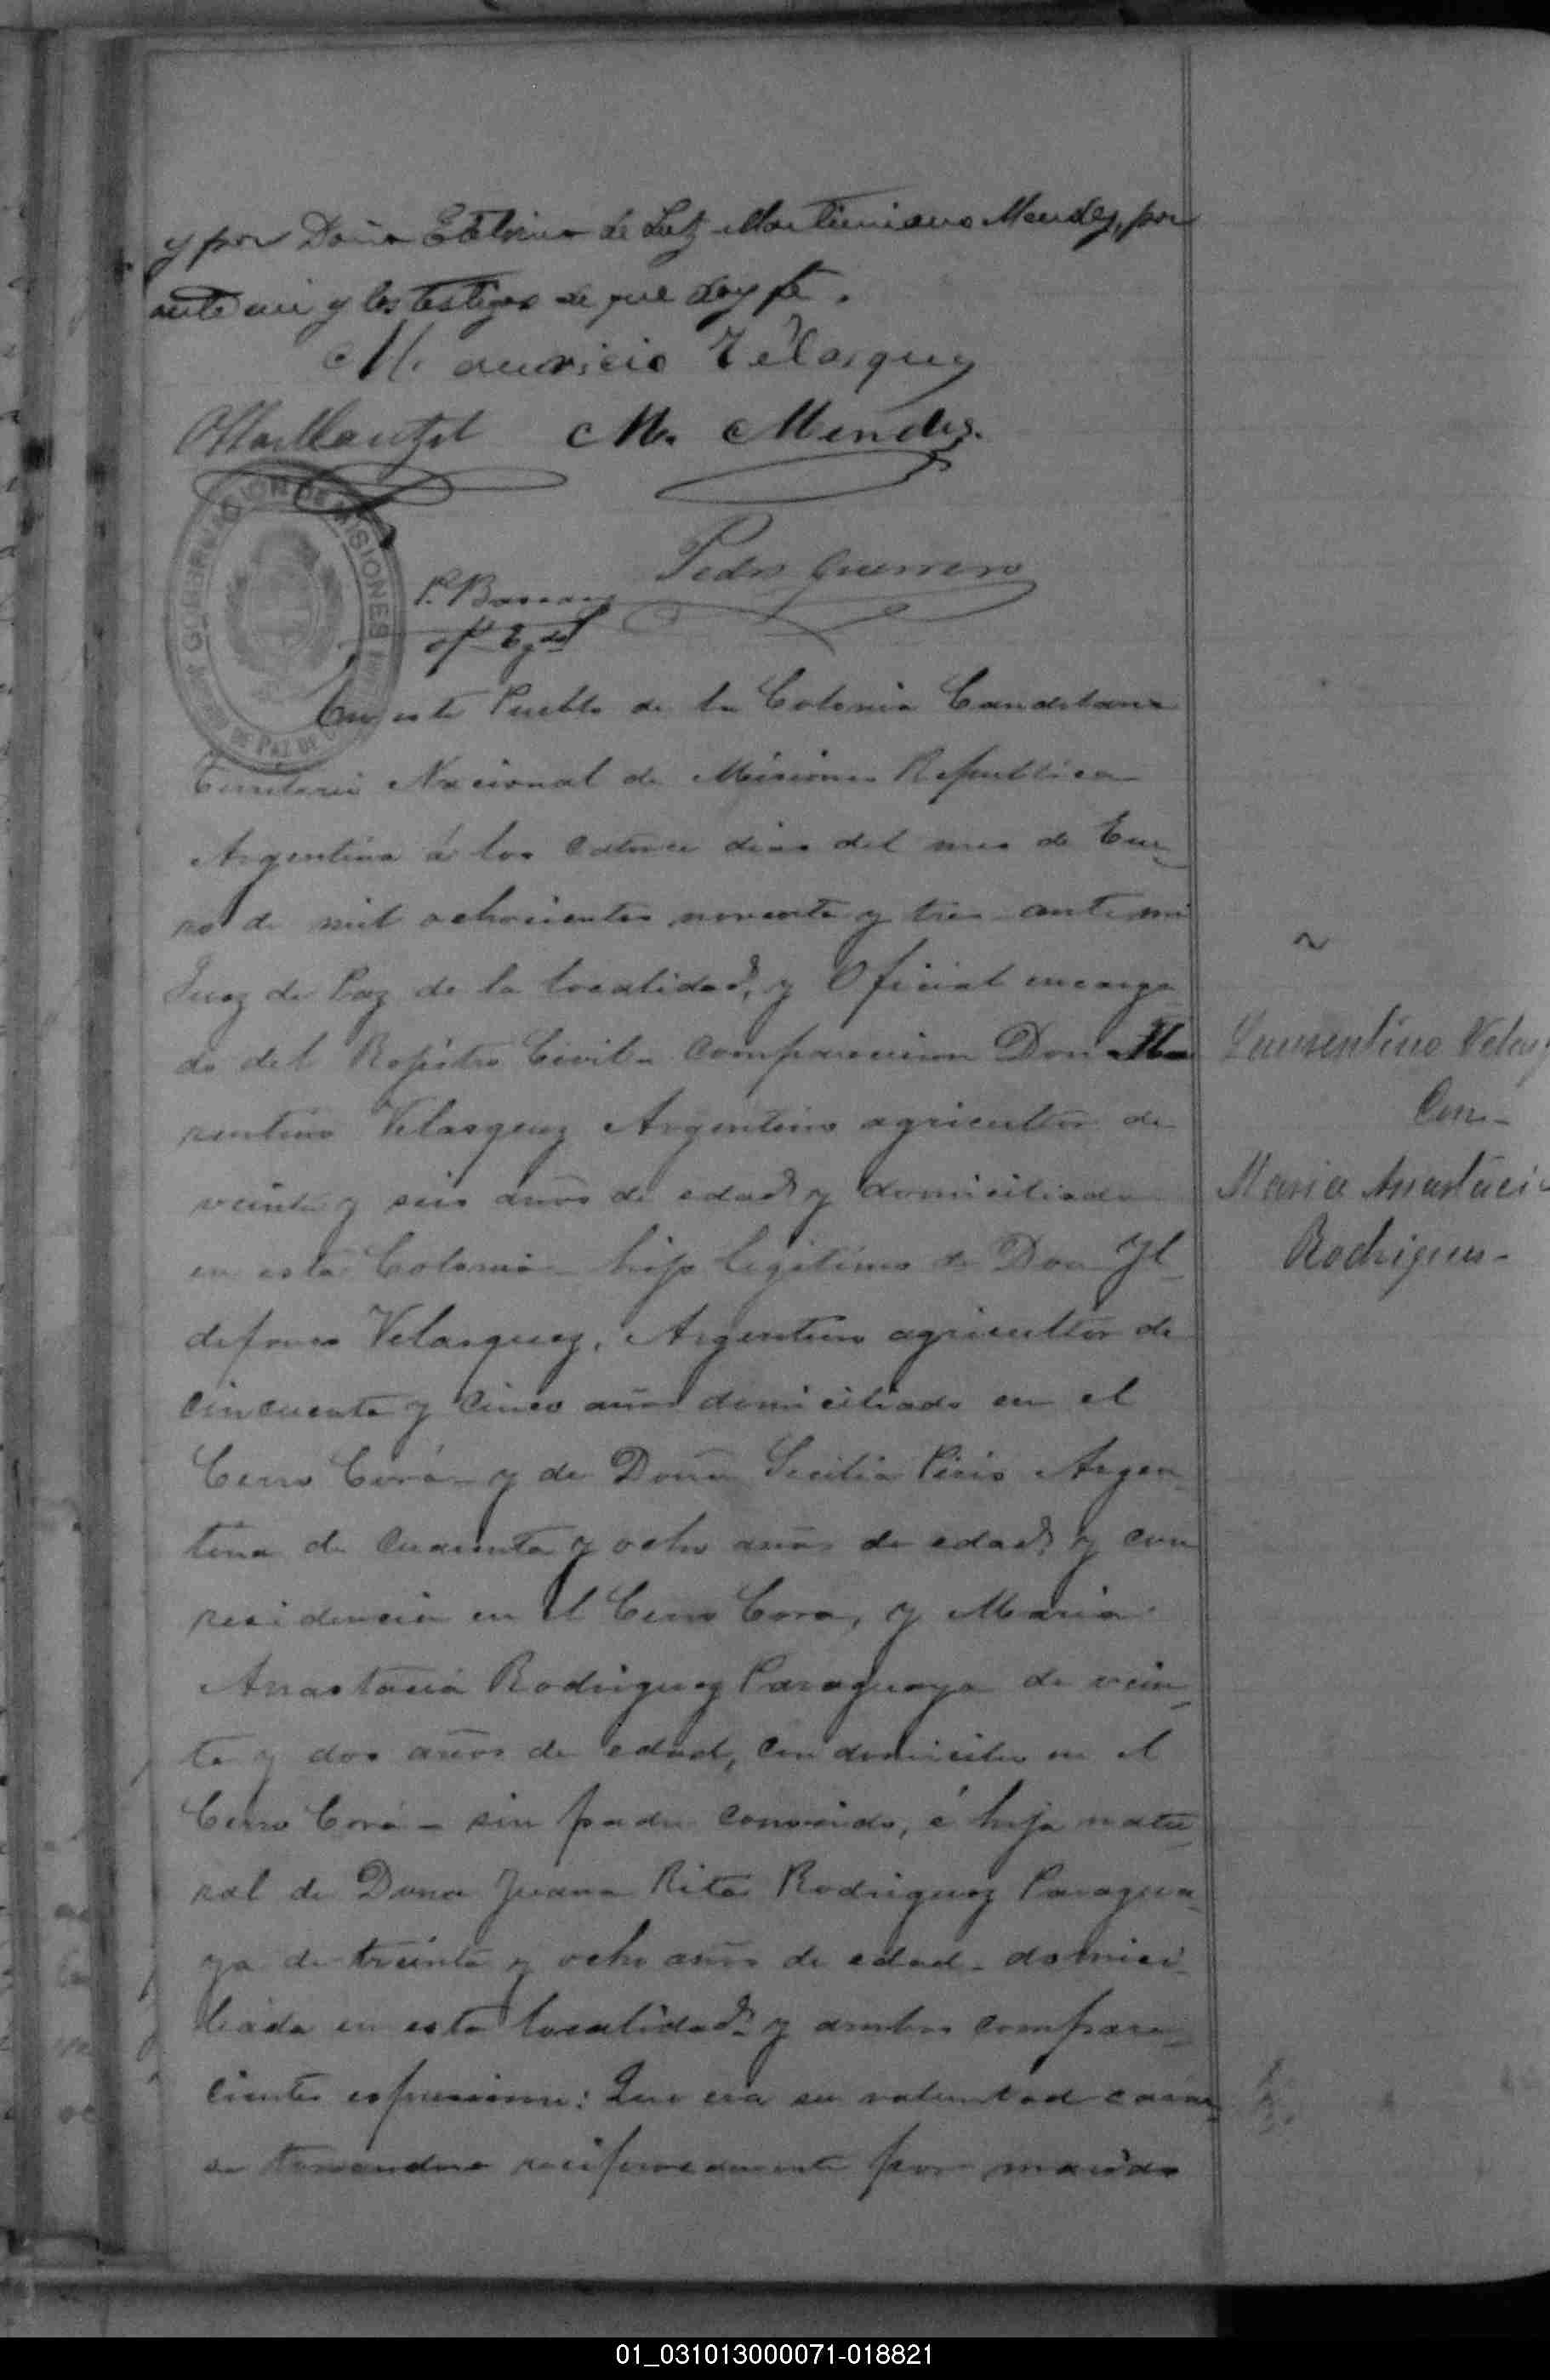 y por Doña de Martiniano Mendez, por
ante mi y los testigos de que doy fe.
Mauricio Velasquez
M. Mendes.
GOBERNACION DE MISIONES
DE PAZ DE
Pedro Guerrero
P.
En este Pueblo de la Colonia Candelaria
Territorio Nacional de Misiones Republica
Argentina á los catorce dias del mes de Ene
ro de mil ochocientos noventa y tres ante mi
Juez de Paz de la localidad, y Oficial encarga
do del Rejistro Civil - comparecieron Don
rentino Velasquez Argentino agricultor de
veinte y seis años de edad y domiciliado
en esta Colonia - hijo legitimo de Don Yl
defonso Velasquez, Argentino agricultor de
cincuenta y cinco años domiciliado en el
Cerro Corá - y de Doña Secilia Piris Argen
tina de cuarenta y ocho años de edad y con
residencia en el Cerro Cora, y Maria
Anastacia Rodriguez Paraguaya de vein
te y dos años de edad, con domicilio en el
Cerro Corá - sin padre conocido, é hija natu
ral de Dona Juana Rita Rodriguez Paragua
ya de treinta y ocho años de edad - domici
liada en esta localidad - y ambos compare
cientes espusieron: Que era su voluntad casar
se tomandose reciprocamente por marido
Laurentino Velasq
Con -
Maria Anastaci
Rodrigues -
01_031013000071-018821